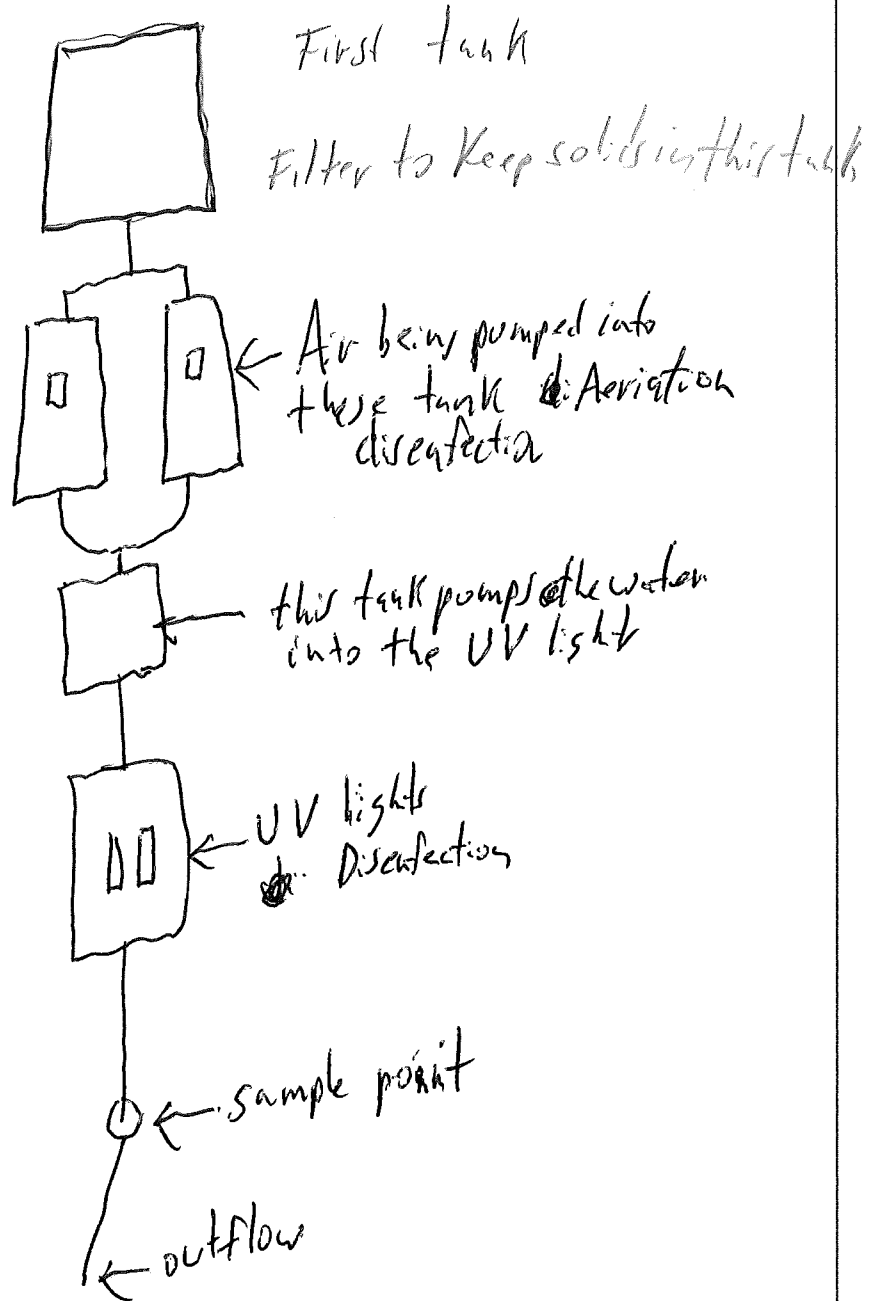 First tank
Filter to Keep solids in this tank
Air being pumped into
these tank Aeriation
disenfectio
this tank pumps the water
into the UV light
UV lights
Disenfection
sample point
outflow